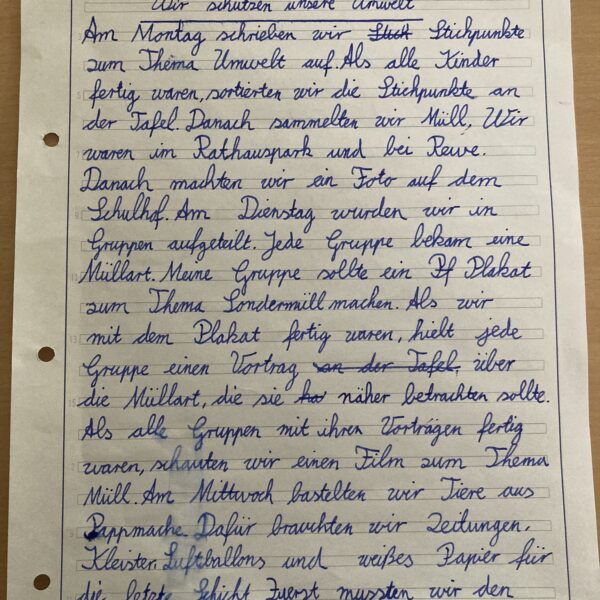 Wir schützen unsere Umwelt
Am Montag schrieben wir Stich Stichpunkte
zum Thema Umwelt auf. Als alle Kinder
fertig waren, sortierten wir die Stichpunkte an
der Tafel. Danach sammelten wir Müll, Wir
waren im Rathauspark und bei Rewe.
Danach machten wir ein Foto auf dem
Schulhof. Am Dienstag wurden wir in
Gruppen aufgeteilt. Jede Gruppe bekam eine
Müllart. Meine Gruppe sollte ein Pf Plakat
zum Thema Sondermüll machen. Als wir
mit dem Plakat fertig waren, hielt jede
Gruppe einen Vortrag an der Tafel, über
die Müllart, die sie ha näher betrachten sollte.
Als alle Gruppen mit ihren Vorträgen fertig
waren, schauten wir einen Film zum Thema
Müll. Am Mittwoch bastelten wir Tiere aus
Pappmache. Dafür brauchten wir Zeitungen,
Kleister, Luftballons und weißes Papier für
die letzte Schicht. Zuerst mussten wir den